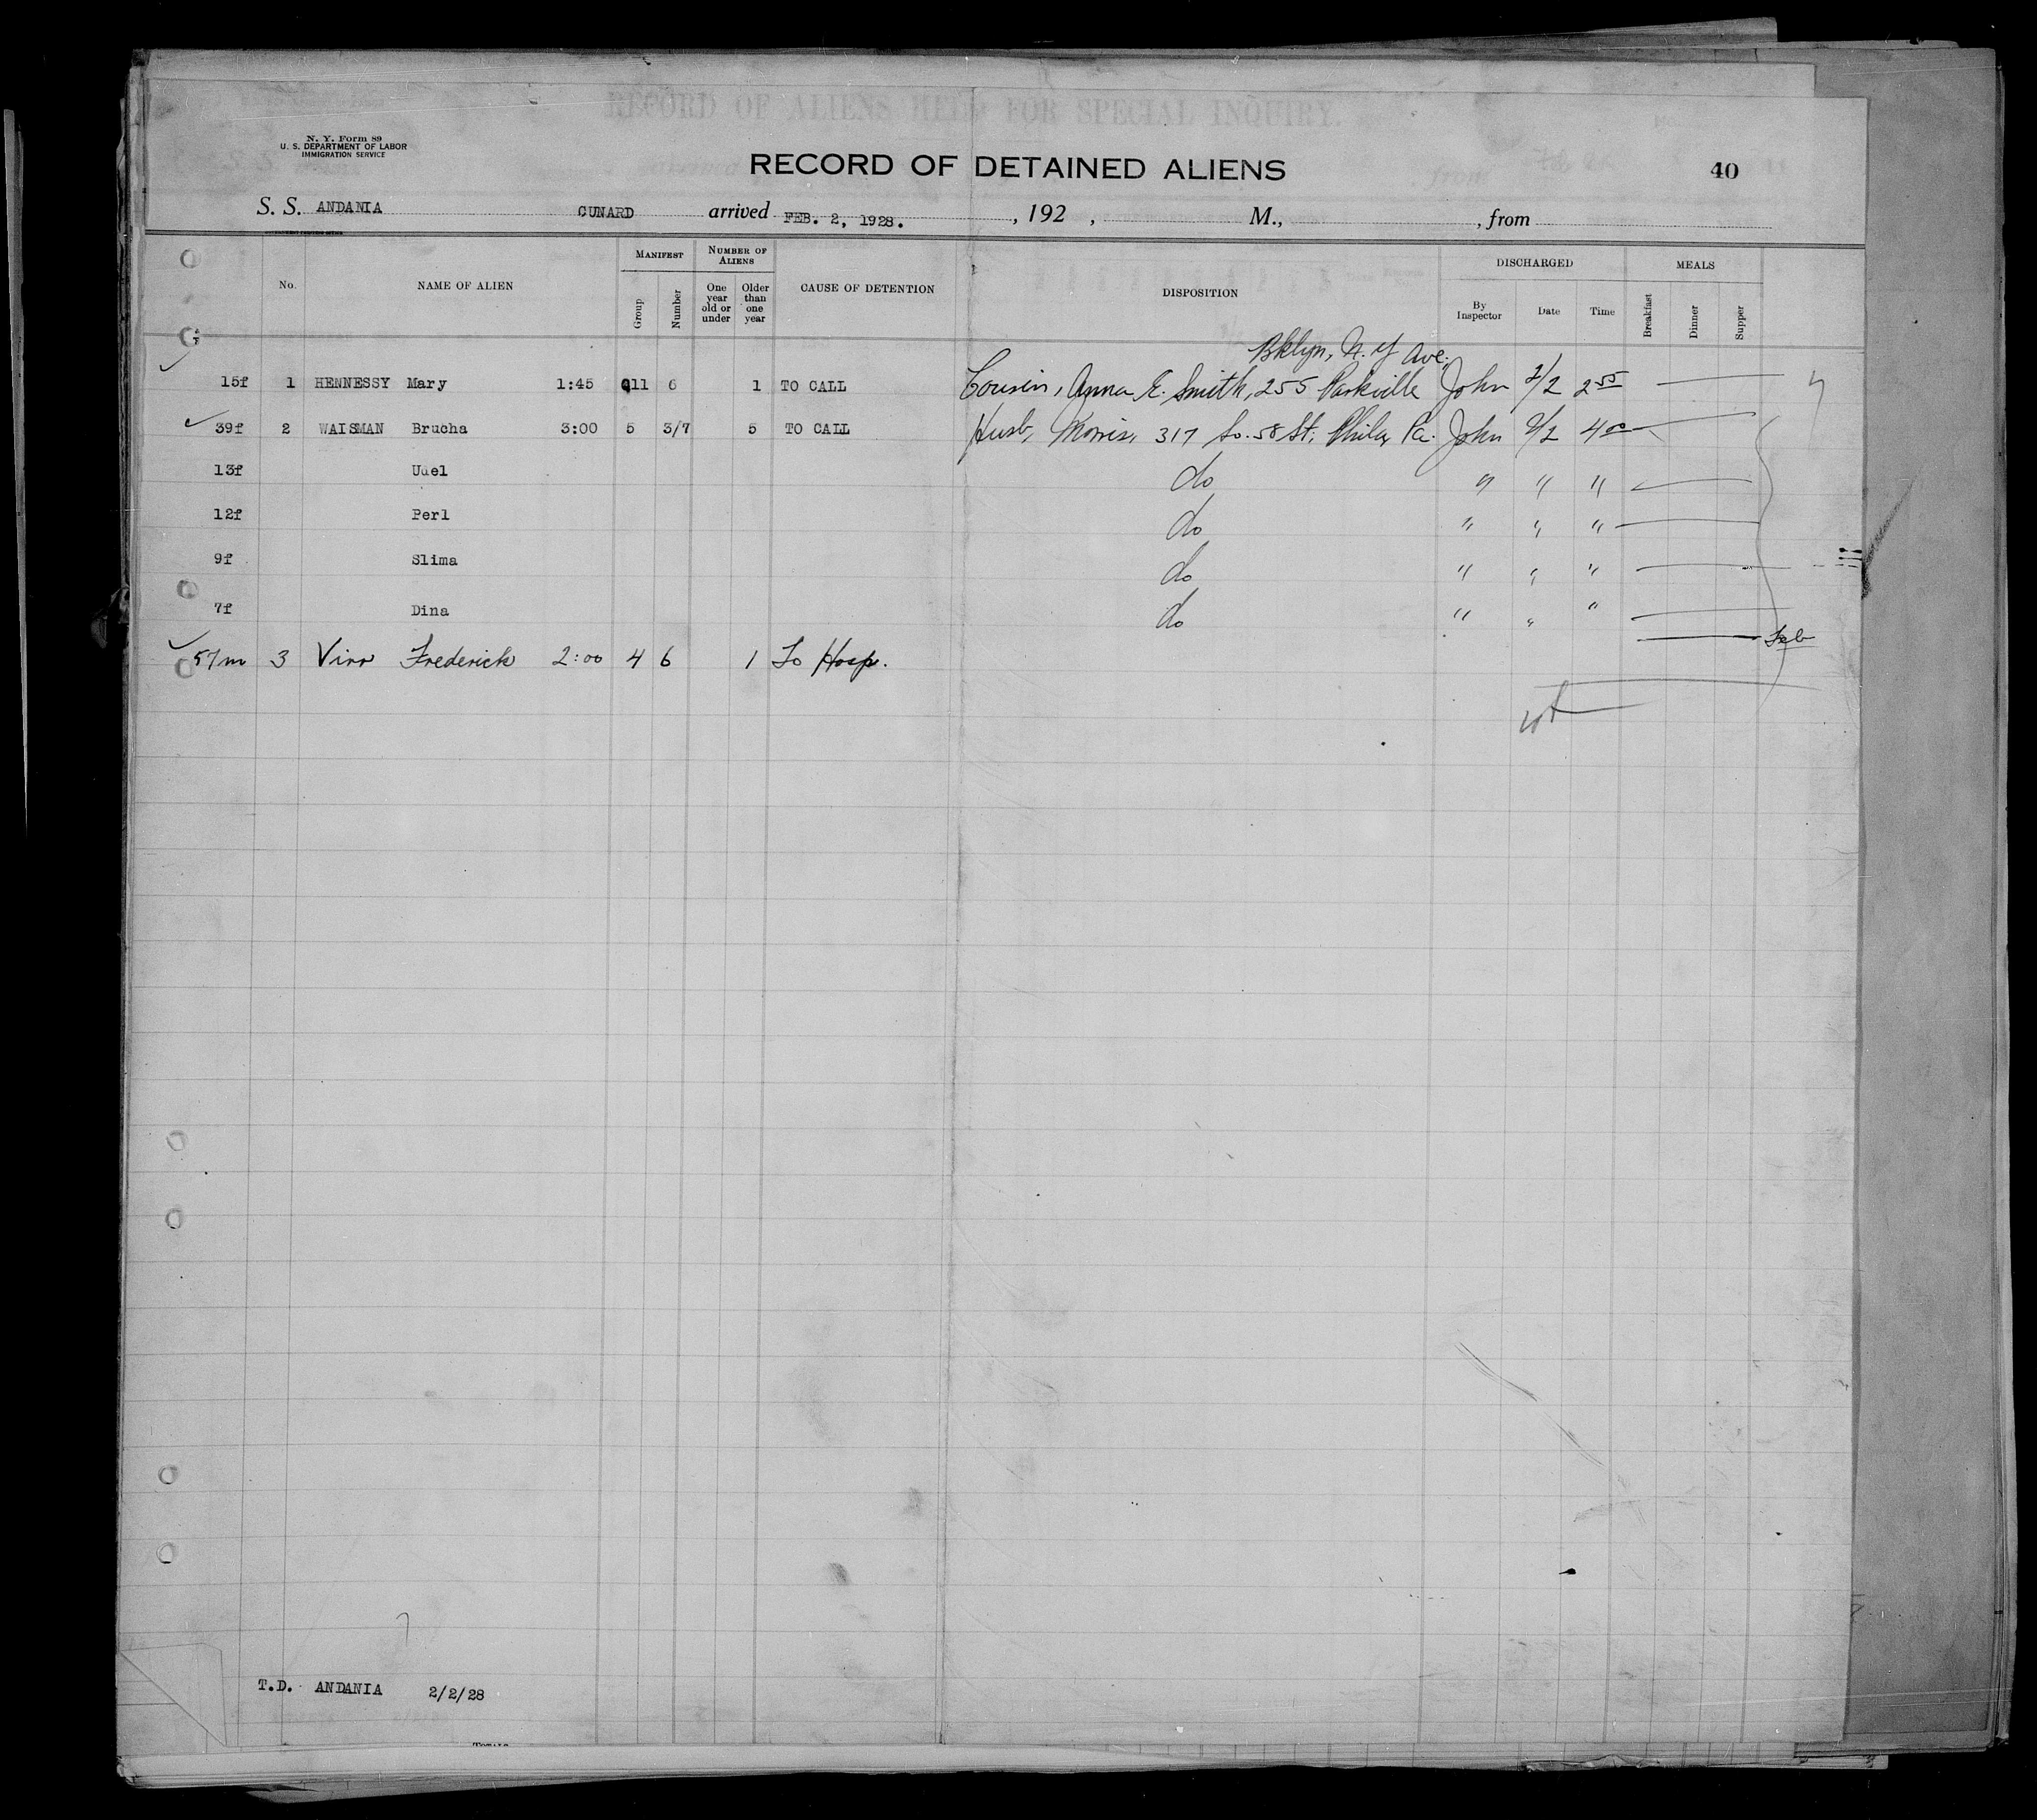 RECORD OF ALIENS HELD FOR SPECIAL INQUIRY.
N. Y. Form 89
U. S. DEPARTMENT OF LABOR
IMMIGRATION SERVICE
RECORD OF DETAINED ALIENS 40
S. S. ANDANIA CUNARD arrived FEB. 2, 1928. , 192 , M., , from
No. NAME OF ALIEN MANIFEST Group Number NUMBER OF ALIENS One year old or under Older than one year CAUSE OF DETENTION DISPOSITION DISCHARGED By Inspector Date Time MEALS Breakfast Dinner Supper
Bklyn, N. Y Ave.
15f 1 HENNESSY Mary 1:45 11 6 1 TO CALL Cousin, Anna E. Smith, 255 Parkville John 2/2 2 55
39f 2 WAISMAN Brucha 3:00 5 3/7 5 TO CALL Husb, Morris, 317 So. 58 St; Phila, Pa. John 2/2 4 00
13f Udel do " " "
12f Perl do " " "
9f Slima do " " "
7f Dina do " " "
57m 3 Virr Frederick 2:00 4 6 1 To Hosp.
T.D. ANDANIA 2/2/28